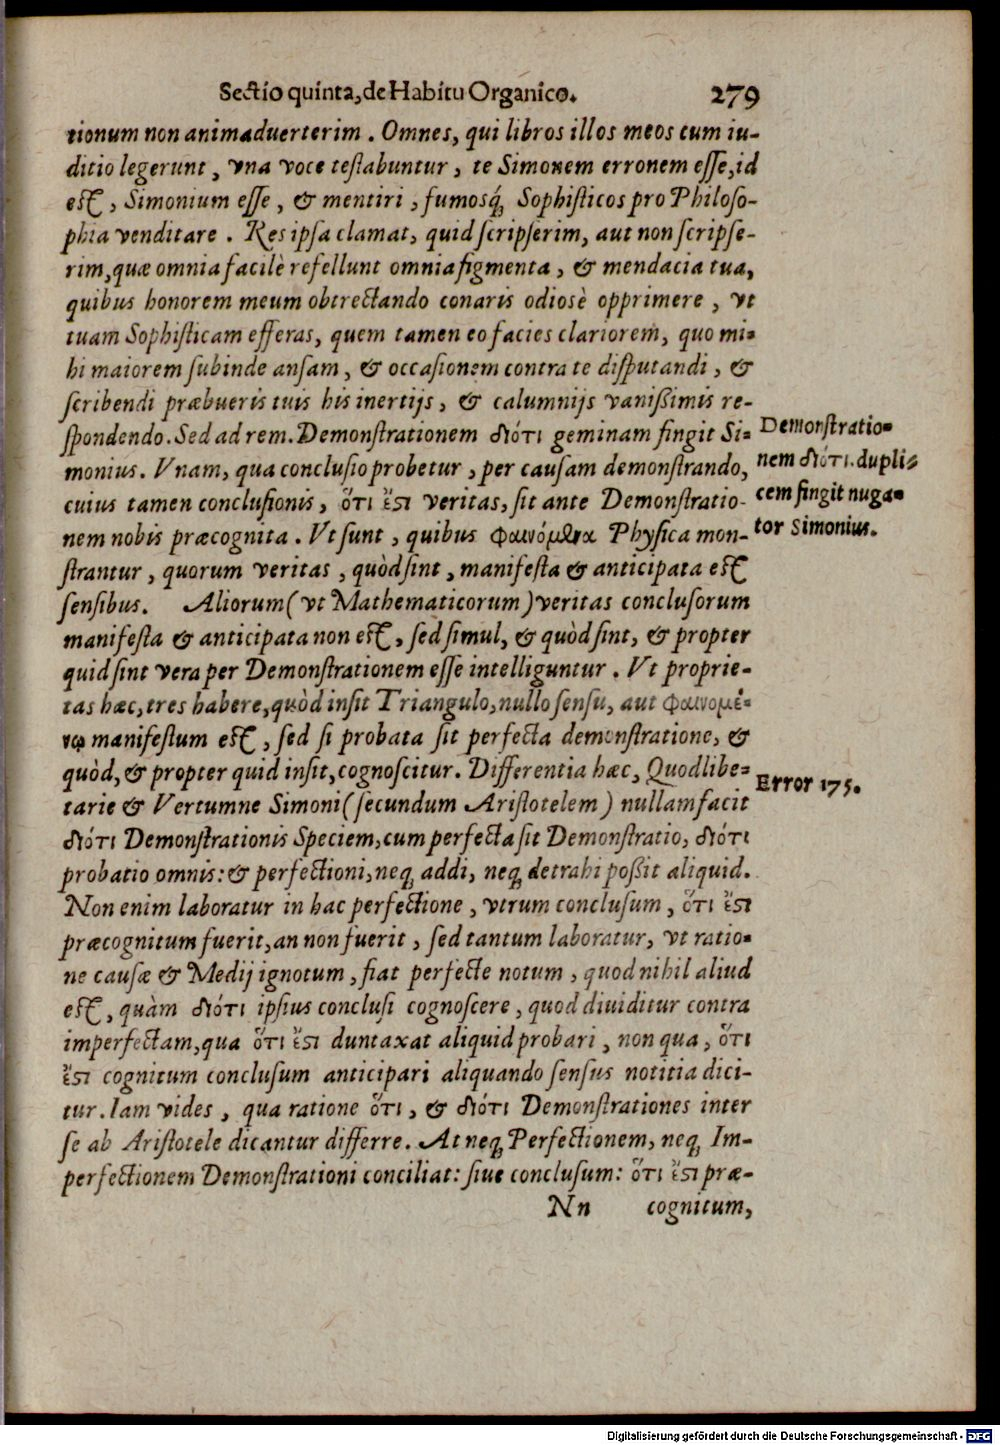 Sectio quinta, de Habitu Organico. 279
tionum non animaduerterim. Omnes, qui libros illos meos cum iu-
ditio legerunt, vna voce testabuntur, te Simonem erronem esse, id
est, Simonium esse, & mentiri, fumosq́; Sophisticos pro Philoso-
phia venditare. Res ipsa clamat, quid scripserim, aut non scripse-
rim, quæ omnia facilè refellunt omnia figmenta, & mendacia tua,
quibus honorem meum obtrectando conaris odiosè opprimere, vt
tuam Sophisticam efferas, quem tamen eo facies clariorem, quo mi-
hi maiorem subinde ansam, & occasionem contra te disputandi, &
scribendi præbueris tuis his inertijs, & calumnijs vanißimis re-
spondendo. Sed ad rem. Demonstrationem διότι geminam fingit Si-
monius. Vnam, qua conclusio probetur, per causam demonstrando,
cuius tamen conclusionis, ὅτι ἔστι veritas, sit ante Demonstratio-
nem nobis præcognita. Vt sunt, quibus φαινόμενα Physica mon-
strantur, quorum veritas, quòd sint, manifesta & anticipata est
sensibus. Aliorum (vt Mathematicorum) veritas conclusorum
manifesta & anticipata non est, sed simul, & quòd sint, & propter
quid sint vera per Demonstrationem esse intelliguntur. Vt proprie-
tas hæc, tres habere, quòd insit Triangulo, nullo sensu, aut φαινομέ-
νῳ manifestum est, sed si probata sit perfecta demonstratione, &
quòd, & propter quid insit, cognoscitur. Differentia hæc, Quodlibe-
tarie & Vertumne Simoni (secundum Aristotelem) nullam facit
διότι Demonstrationis Speciem, cum perfecta sit Demonstratio, διότι
probatio omnis: & perfectioni, neq; addi, neq; detrahi poßit aliquid.
Non enim laboratur in hac perfectione, vtrum conclusum, ὅτι ἔστι
præcognitum fuerit, an non fuerit, sed tantum laboratur, vt ratio-
ne causæ & Medij ignotum, fiat perfecte notum, quod nihil aliud
est, quàm διότι ipsius conclusi cognoscere, quod diuiditur contra
imperfectam, qua ὅτι ἔστι duntaxat aliquid probari, non qua, ὅτι
ἔστι cognitum conclusum anticipari aliquando sensus notitia dici-
tur. Iam vides, qua ratione ὅτι, & διότι Demonstrationes inter
se ab Aristotele dicantur differre. At neq; Perfectionem, neq; Im-
perfectionem Demonstrationi conciliat: siue conclusum: ὅτι ἔστι præ-
Nn cognitum,
Demonstratio-
nem διότι. dupli-
cem fingit nuga-
tor Simonius.
Error 175.
Digitalisierung gefördert durch die Deutsche Forschungsgemeinschaft - DFG